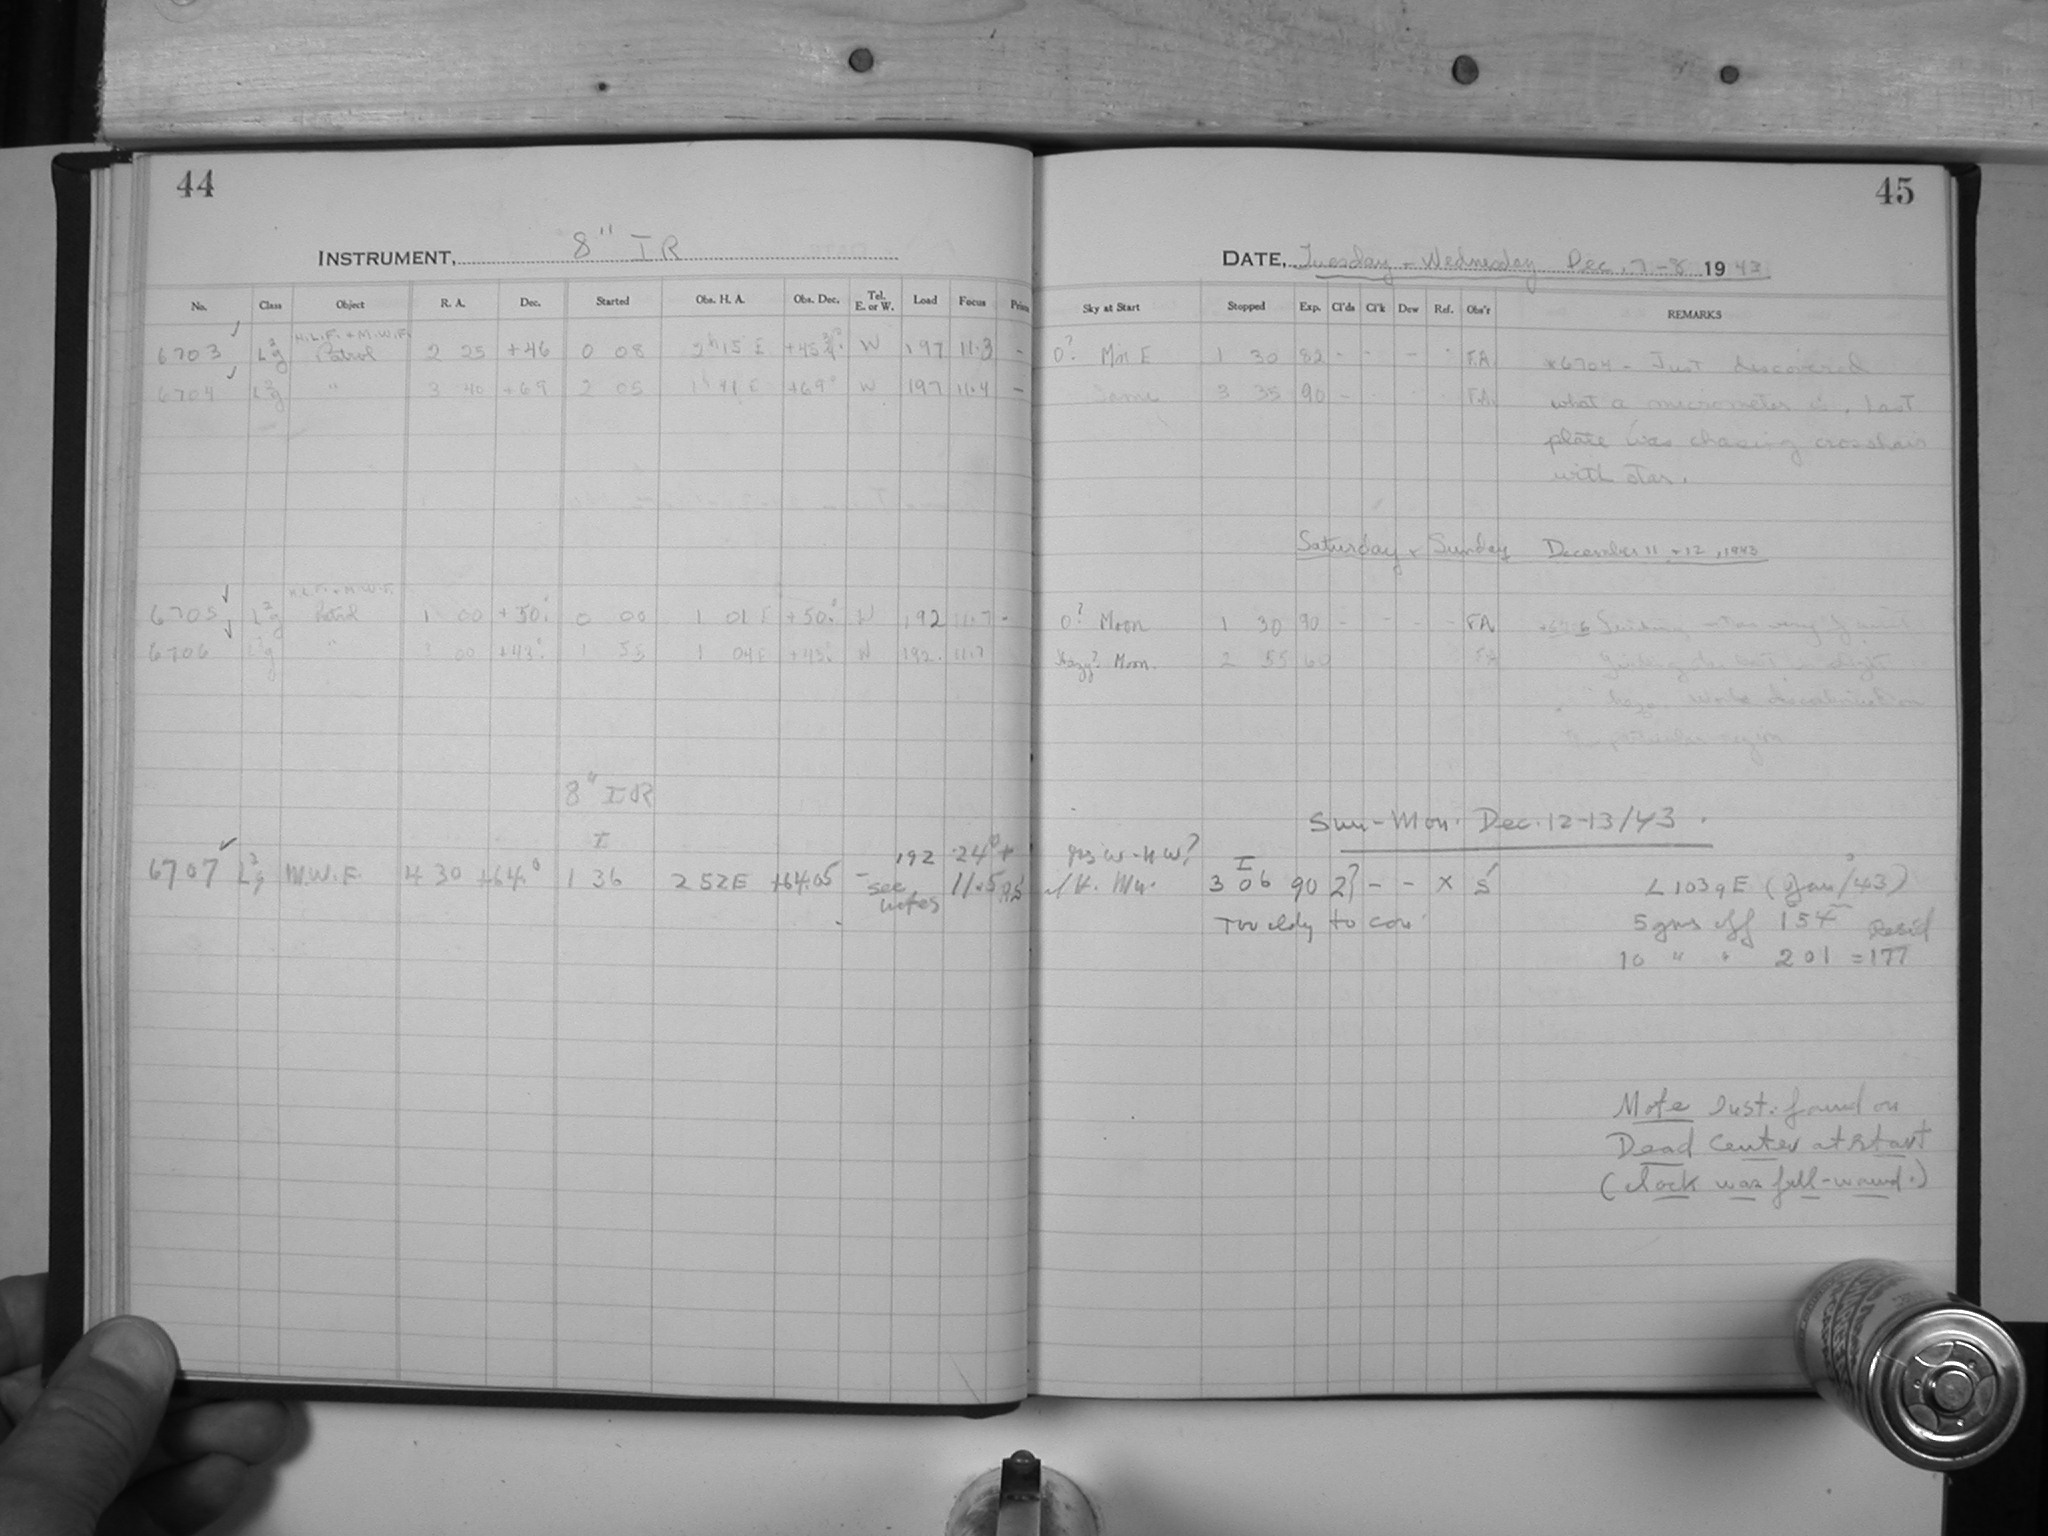 44
INSTRUMENT, 8" IR
No. Class Object R. A. Dec. Started Obs. H. A. Obs. Dec. Tel. E. or W. Load Focus
H.L.F. + M.W.F.
6703 L2g Patrol 2 25 +46 0 08 2h 15 E +45 3/4° W 197 11.3 -
6704 L2g " 3 40 +69 2 05 1h 41 E +69° W 197 11.4 -
H.L.F. + M.W.F.
6705 L2g Patrol 1 00 +50° 0 00 1 01 E +50° W 192 11.7 -
6706 L2g " 00 +43° 1 55 1 04E +43° W 192. 11.7
8" IR
I
192 24°
6707 L2g M.W.F. 4 30 +64.0 1 36 2 52E +64.05 - 11.5
see
notes
45
DATE, Tuesday - Wednesday Dec. 7-8 1943
Sky at Start Stopped Exp. Cl'ds Cl'k Dew Ref. Obs'r REMARKS
0? E 1 30 82 - - - - F.A
*6704 - Just discovered
Same 3 35 90 - F.A.
what a micrometer is. Last
plate was chasing crosshair
with star.
Saturday + Sunday December 11 + 12, 1943
0? Moon 1 30 90 - - - - FA
Hazy? Moon. 2 55 60 FA
guiding slight
haze.
region
Sun-Mon. Dec. 12-13/43.
I
3 06 90 2? - - x S
Too cldy to con
L 103gE (Jan/43)
5 gms off 154
10 " " 201 = 177
Note Inst. found on
Dead Center at start
(clock was full-wound.)